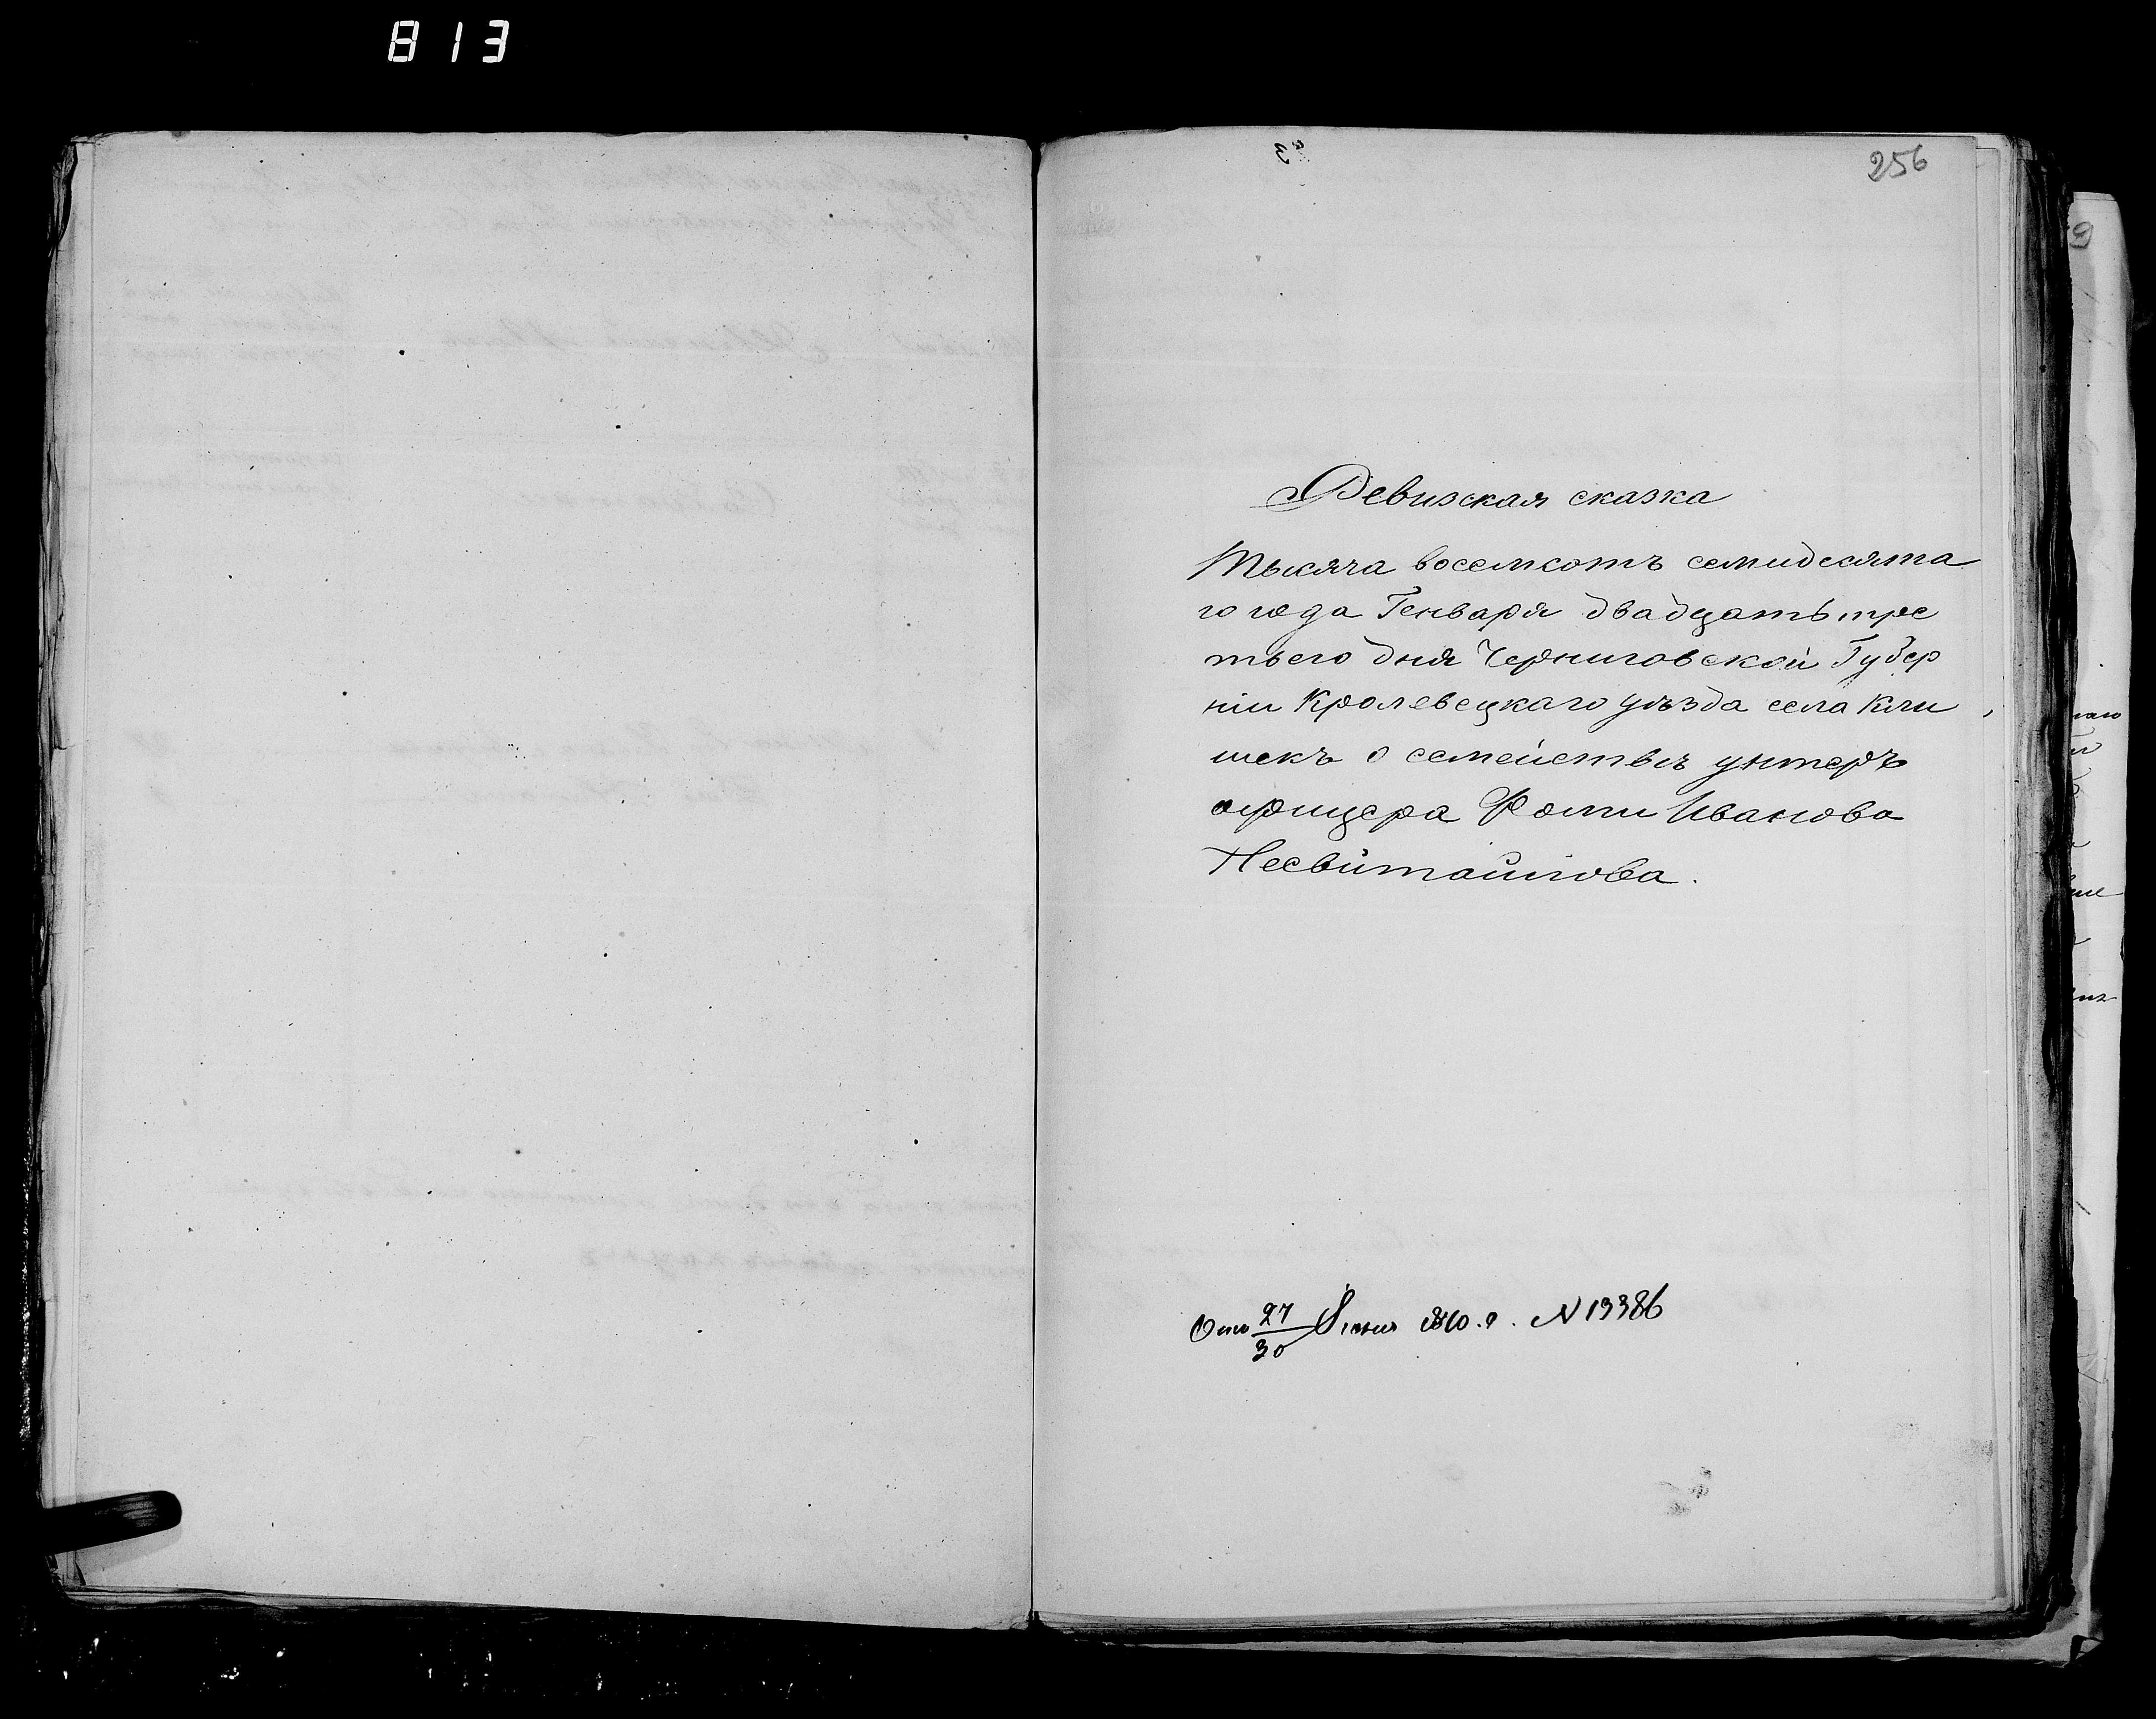 813
256
Ревизская сказка
Тысяча восемсотъ семидесята
го года Генваря двадцать тре
тьего дня Черниговской Губер
ніи Кролевецкаго уѣзда села Кли
шекъ о семействѣ унтеръ
офицера Фомы Иванова
Несвитайлова.
27
30 870. г. N 13386